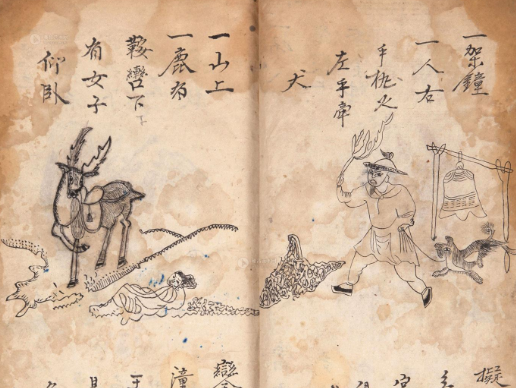 一架鐘
一人右
手挑火
左手牽
犬
一山上
一鹿有
鞍轡下
有女子
仰臥